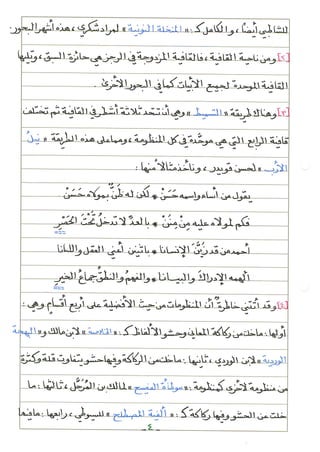 للشاطبي أيضًا، والكامل كـ: «المنحلة النونية» لمراد شكري، هذه أشهر البحور.
[٢] ومن ناحية القافية، فالقافية المزدوجة في الرجز هي حائزة السبق، وتليها
القافية الموحدة لجميع الأبيات كما في البحور الأخرى.
[٣] وهناك طريقة «التسميط» وهي أن تتحد ثلاثة أشطر في القافية ثم تختلف
قافية الرابع التي هي موحدة في كل المنظومة، ومما على هذه الطريقة «نيل
الأرب» لحسن قويدر، ونأخذ مثالا منها:
يقول من أساء واسمه حَسَنْ * لكن له ظنٌّ بمولاه حَسَنْ
فكم لمولاه عليه مِن مِنَنْ * بالعدِّ لا تدخلُ تحْتَ الحَصْرِ
أحمد من قد زيَّنَ الإنسانا * باثنين أعني العقل واللسانا
ألهمه الإدراكَ والبيانا * والفهمُ والنطقُ جماعُ الخيرِ
[٤] وقد أتتني خاطرةٌ أن المنظومات من حيث الأفضلية على أربع أقسامٍ وهي:
أولها: ما خلت من ركاكة المعاني وحشو الألفاظ كـ: «الخلاصة» لابن مالك و«البهجة
الوردية» لابن الوردي، ثانيها: ما خلت من الركاكة وفيها حشو يتفاوت قلة وكثرة
من منظومة لأخرى كمنظومة: «موطأة الفصيح» لمالك بن المُرَحَّل، ثالثها: ما
خلت عن الحشو وفيها ركاكة كـ: «ألفية المصطلح» للسيوطي، رابعها: ما فيها
٤